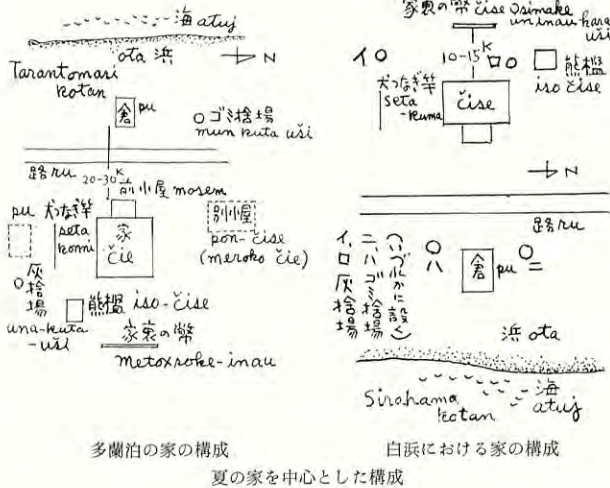 海 atuj
ota 浜
N
Tarantomari
kotan
倉 pu
ゴミ捨場
mun kuta uši
路 ru
20-30K
前小屋 mosem
pu
犬つなぎ竿
seta
konni
家
čie
別小屋
pon-čise
(meroko čie)
灰捨場
una-kuta
-uši
熊檻 iso-čise
家裏の幣
metoxsoke-inau
多蘭泊の家の構成
家裏の幣 čise osimake
un inau kara
uši
イ
10-15K
ロ
熊檻
iso čise
犬つなぎ竿
seta
-kuma
čise
N
路 ru
イ、ロ 灰捨場
ニ、ハ ゴミ捨場
(いづれかに設く)
ハ
倉 pu
ニ
浜 ota
Sirahama
kotan
海
atuj
白浜における家の構成
夏の家を中心とした構成